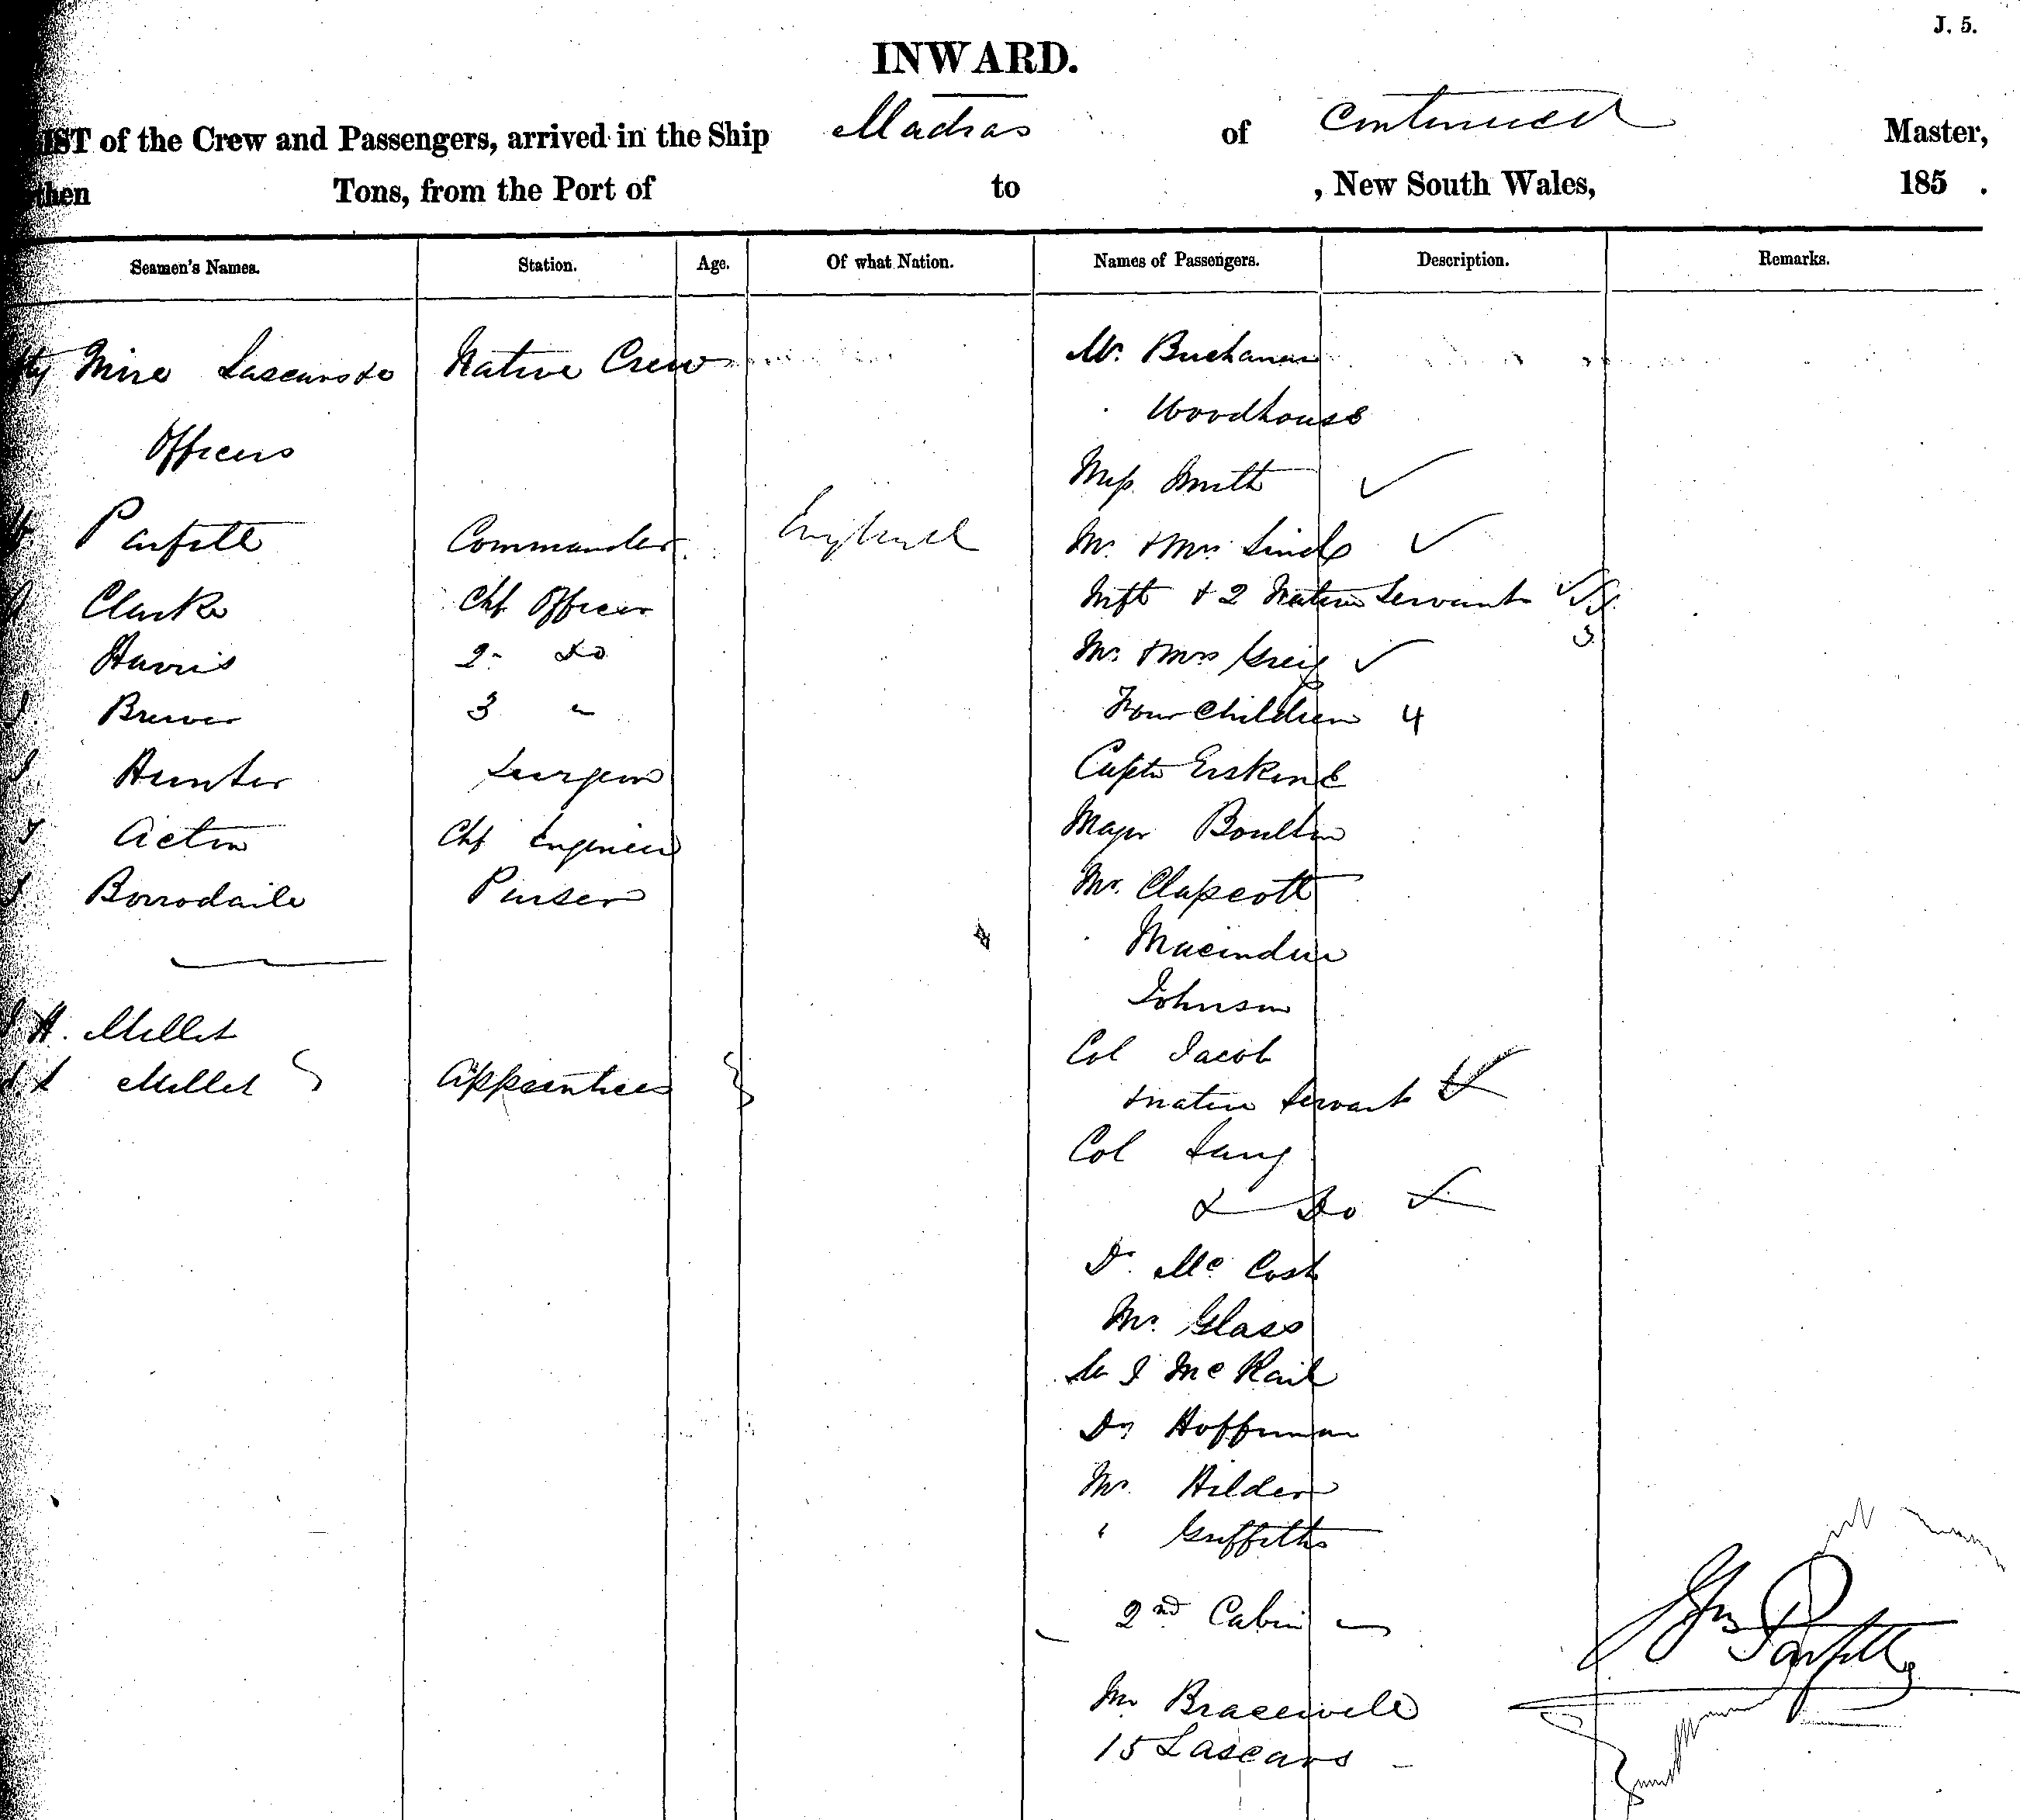 J. 5.
INWARD.
IST of the Crew and Passengers, arrived in the Ship Madras of Continued Master,
then Tons, from the Port of to , New South Wales, 185 .
Seamen's Names. Station. Age. Of what Nation. Names of Passengers. Description. Remarks.
ty Nine Lascars &c Native Crew Mr. Buchanan
Officers Woodhouse
Miss Smith
Parfitt Commander England Mr. & Mrs
Clarke Chf Officer Inft & 2 Native Servants
3
Harris 2 Do Mr. & Mrs Greig
Brewer 3 " Four Children 4
Hunter Surgeon Captn Erskine
Acton Chf Engineer Major Boulton
Borrodaile Purser Mr. Clapcott
Johnson
H. Mellet Col Jacob
Mellet Apprentices & native Servant
Col Lang
& Do
Dr. Mc Cosh
Mr. Glass
Mc Rail
Dr Hoffman
Mr. Hilder
" Griffiths
2nd Cabin
Mr Bracewell
15 Lascars
Jno Parfitt